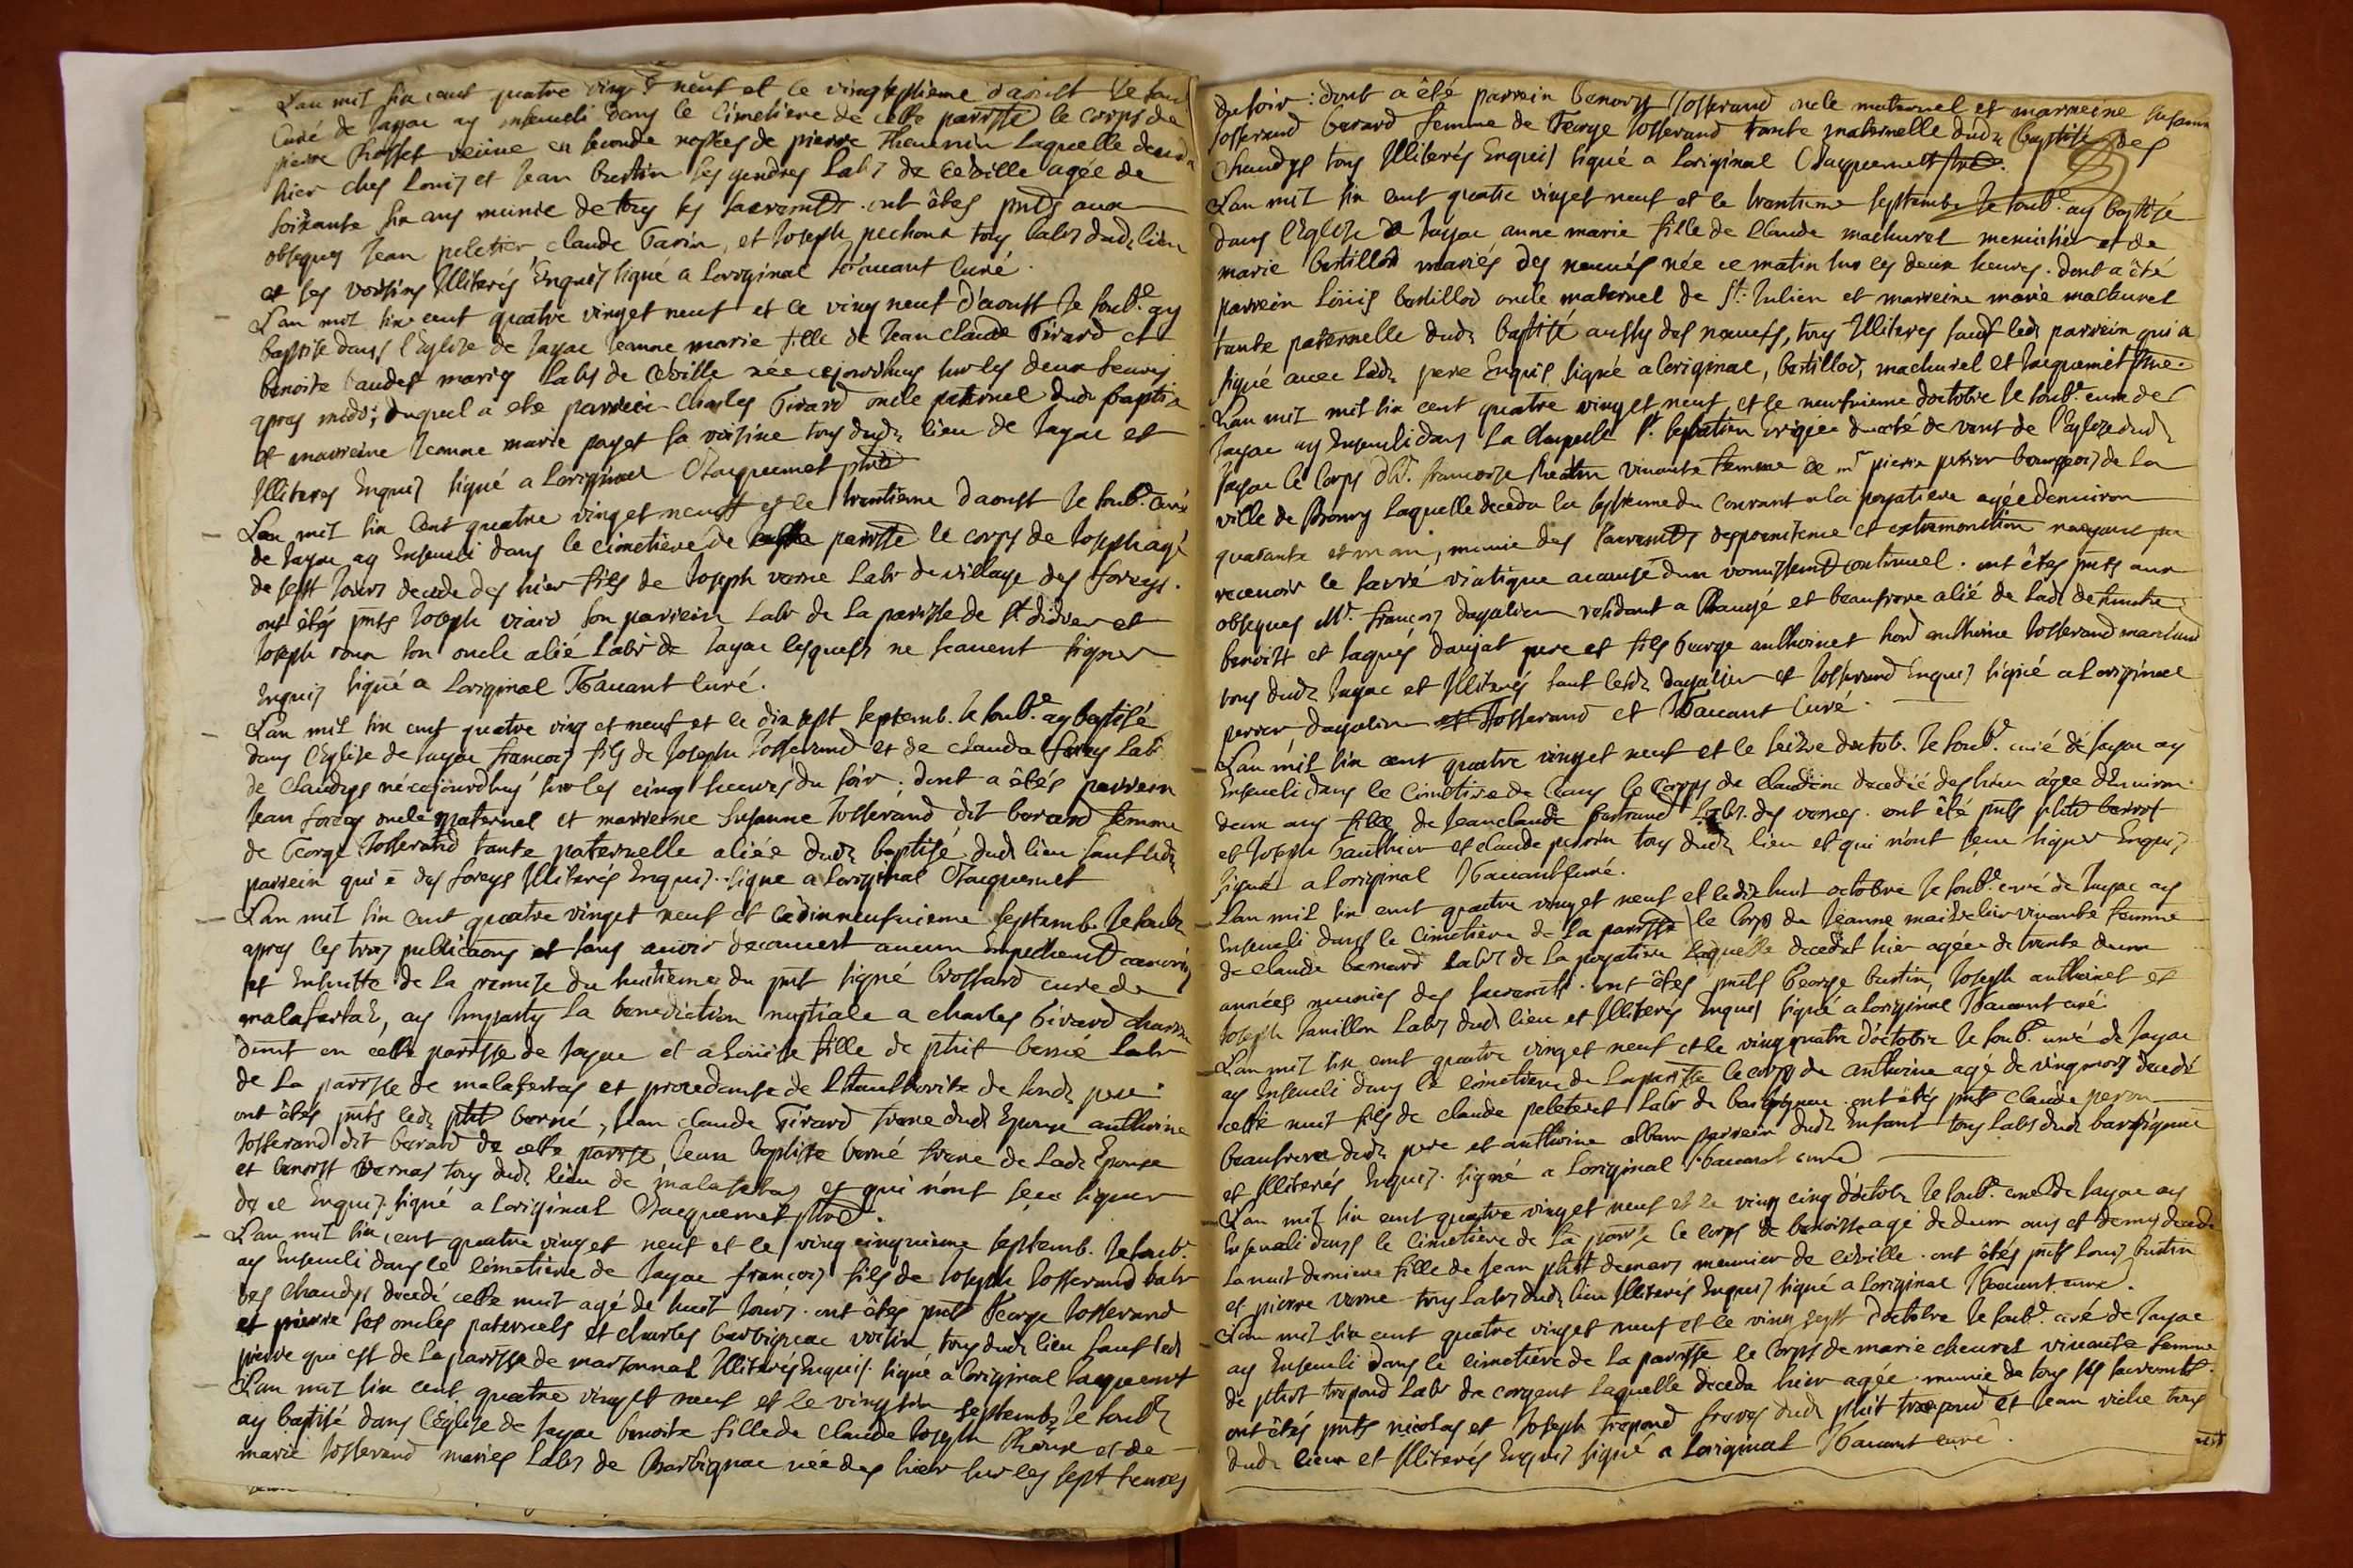 L'an mil six cent quatre ving et neuf et le vingtseptieme d'aoust Je soub
Curé de Jayac ay enseueli dans le Cimetiere de cette parrsse le corps de
pierre veüue en seconde nopces de pierre Theuenin Laquelle deceda
hier ches Louis et Jean bustin ses gendres Labr de ceuille agée de
soixante six ans munie de tous ses sacremts. ont êtes pnts aux
obseques Jean peletier, claude Tavin, et Joseph pechoux tous labrs dud lieu
et ses voisins Illiterés Enquis signé a Loriginal curé.
L'an mil six cent quatre vinget neuf et le ving neuf d'aoust Je soubé ay
baptise dans l'Eglise de Jayac Jeanne marie fille de Jean claude Girard et
benoite baudet mariés Labrs de Ceuille née cejourdhuy sur les deux heures
apres midy; duquel a ete parrein Charles Girard oncle paternel dud baptisé
et marreine Jeanne marie payet sa voisine tous dud lieu de Jayac et
Illiteres Enquis signé a Loriginal Jacquemet ptre
L'an mil six Cent quatre vinget neuf et le trentieme d'aoust Je soubé Curé
de Jayac ay Enseueli dans le cimetiere de parrsse le corps de Joseph agé
de sept Jours decede des hier fils de Joseph verne Labr du village des foreys.
ont étés pnts Joseph viard son parrein Labr de la parrsse de st didier et
Joseph roux son oncle alié Labr de Jayac lesquels ne scauent signer
Enquis signé a Loriginal curé.
L'an mil six cent quatre ving et neuf et le dix sept septemb. Je soubé ay baptisé
dans l'Eglise de Jayac francois fils de Joseph Josserand et de clauda forey Labr
de Claudys né cejourdhuy sur les cinq heures du soir; dont a étés parrein
Jean forey oncle maternel et marreine Susanne Josserand dit berard femme
de George Josserand tante paternelle aliée dud baptisé dud lieu sauf led
parrein qui e des foreys Illiterés Enquis. signe a Loriginal Jacquemet
L'an mil six cent quatre vinget neuf et le dixneufuieme septemb. Je soubé
apres les trois publicaons et sans auoir decouuert aucun Empechemt canoniq
et Ensuitte de la remise du huitieme du pnt signé brossard curé de
malafertaz, ay Imparty la benediction nuptiale a charles Girard
dmt en cette parrsse de Jayac et a Loüise fille de phit berné Labr
de la parrsse de malafertas et procedante de L'authorité de sond pere
ont êtes pnts led phit berné, Jean claude Girard frere dud Epoux anthoine
Josserand dit berard de cette parrsse Jean baptiste berné frere de lade Epouse
et benoist bernas tous dud lieu de malafertas et qui n'ont sceu signer
de ce Enquis. signé a Loriginal Jacquemet ptre.
L'an mil six cent quatre vinget neuf et le ving cinquieme septemb. Je soubé
ay Enseueli dans le Cimetiere de Jayac françois fils de Joseph Josserand labr
des chaudys decedé cette nuit agé de huit Jours. ont êtes pnts George Josserand
et pierre ses oncles paternels et charles barbignac voisin, tous dud lieu sauf led
pierre qui est de la parrsse de marsonnas Illiterés Enquis. signé a Loriginal Jacquemet
L'an mil six cent quatre vinget neuf et le vingtsix septemb Je soubé
ay baptisé dans l'Eglise de Jayac benoite fille de claude Joseph Rhône et de
marie Josserand mariés Labrs de Barbignac née des hier sur les sept heures
du soir: dont a été parrein benoist Josserand oncle maternel et marreine susanne
Josserand berard femme de George Josserand tante maternelle dud baptisé des
Chaudys tous Illiterés Enquis signé a Loriginal Jacquemet ptre.
L'an mil six cent quatre vinget neuf et le trentieme septembre Je soubé ay baptisé
dans l'Eglise de Jayac anne marie fille de Claude machurel menuisier et de
marie bertillod mariés des néc ce matin sur les deux heures. dont a été
parrein Loüis bertillod oncle maternel de st: Julien et marreine marie machurel
tante paternelle dud baptisé aussy des, tous Illiteres sauf led parrein qui a
signé auec led pere Enquis, signé a loriginal, bertillod, machurel et Jacquemet ptre.
L'an mil mil six cent quatre vinget neuf et le neufuieme d'octobre Je soubé curé de
Jayac ay Enseueli dans La Chapelle st. sebastien erigée du coté de vent de l'Eglize dud
Jayac le Corps de francoise viuante femme de mr pierre perrier bourgeois de La
ville de Bourg Laquelle deceda le septieme du Courant a la poyatiere agée denuiron
quarante et un an, munie des sacremts de poenitence et extremonction nayant pu
receuoir le sacré viatique acausé dun vomissemt continuel. ont êtes pnts aux
obseques Mr. françois dagalier residant a et beaufrere alié de lade defuntte
benoist et Jaques daujat pere et fils George anthoinet hond anthoine Josserand marchand
tous dud Jayac et Illiterés sauf lesd dagalier et Josserand Enquis signé a Loriginal
perrier dagalier Josserand et curé.
L'an mil six cent quatre vinget neuf et le seizie doctob. Je soubé. curé de Jayac ay
Enseueli dans le Cimetiere de le Corps de claudine decedée des hier agée denuiron
deux ans fille de Jeanclaude Labr. des vernes. ont été pnts
et Joseph Gauthier et claude perrin tous dud lieu et qui n'ont sceu signer Enquis
signé a Loriginal curé.
L'an mil six cent quatre vinget neuf et le dix huit octobre Je soubé curé de Jayac ay
Enseueli dans le Cimetiere de la parrsse le Corps de Jeanne viuante femme
de claude bernard Labr de la poyatiere Laquelle deceda hier agée de trente deux
années munies des sacremts. ont êtes pnts George bustin, Joseph anthoinet et
Joseph Janillon Labrs dud lieu et Illiterés Enquis signé a Loriginal curé
L'an mil six cent quatre vinget neuf et le ving quatre d'octobre Je soubé curé de Jayac
ay Enseueli dans le cimetiere de la parrsse le corps de anthoine agé de ving mois decedé
cette nuit fils de claude peleteret Labr de barbignac. ont étés pnts claude peron
beaufrere dud pere et anthoine parrein dud Enfant tous Labrs dud barbignac
et Illiterés Enquis. signé a Loriginal curé
L'an mil six cent quatre vinget neuf et le ving cinq d'octob Je soubé curé de Jayac ay
Enseueli dans le cimetiere de la parrsse le corps de benoiste agé de deux ans et demy decedé
la nuit derniere fille de Jean phit meunier de ceuille. ont étés pnts Louis bustin
et pierre verne tous Labrs dud lieu Illiterés Enquis signé a Loriginal curé.
L'an mil six cent quatre vinget neuf et le ving sept d'octobre Je soubé curé de Jayac
ay Enseueli dans le cimetiere de la parrsse le Corps de marie cheurel viuante femme
de phit trepoud Labr de corgent Laquelle deceda hier agée munie de tous ses sacremts.
ont étés pnts nicolas et Joseph trepoud freres dud phit trepoud et Jean viche tous
dud lieu et Illiterés Enquis signé a Loriginal curé.